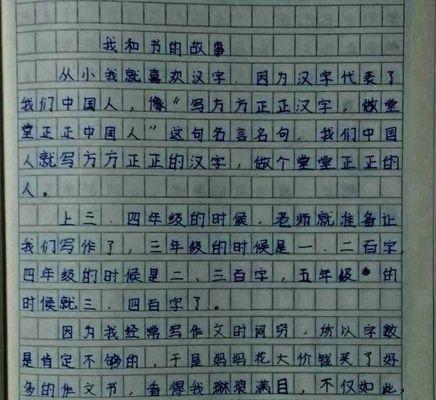 我和书的故事
从小我就喜欢汉字,因为汉字代表了
我们中国人,像“写方方正正汉字,做堂
堂正正中国人”这句名言名句,我们中国
人就写方方正正的汉字,做个堂堂正正的
人。
上三、四年级的时候,老师就准备让
我们写作了,三年级的时候是一、二百字,
四年级的时候是二、三百字,五年级的
时候就三、四百字了。
因为我经常写作文时词穷,所以字数
是肯定不够的,于是妈妈花大价钱买了好
多的作文书,看得我琳琅满目,不仅如此,